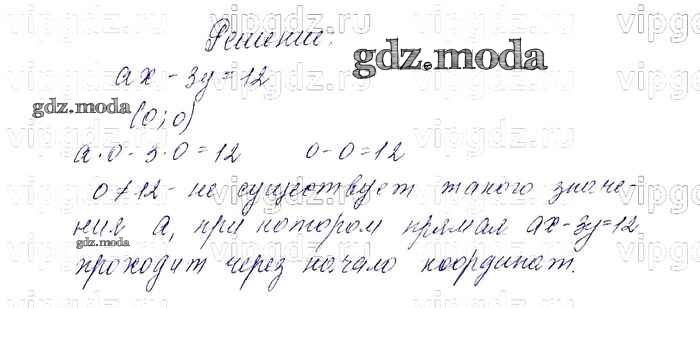 Решение:
gdz.moda
ax - 3y = 12
gdz.moda
(0; 0)
a·0 - 3·0 = 12 0 - 0 = 12
0 ≠ 12 - не существует такого значе-
ния a, при котором прямая ax - 3y = 12
gdz.moda
проходит через начало координат.